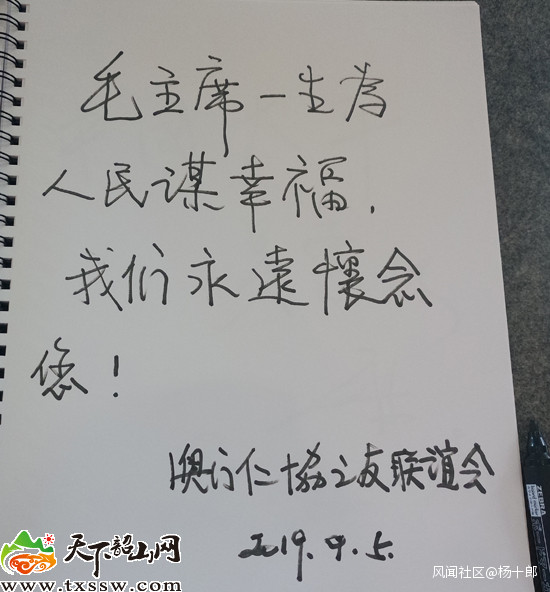 毛主席一生为
人民谋幸福，
我们永遠懷念
您！
澳门仁協之友联谊会
2019.9.5.
ZEBRA
天下韶山网
www.txssw.com
风闻社区@杨十郎